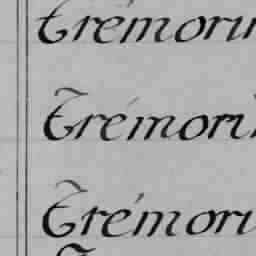 trémorin
Trémorin
Trémorin